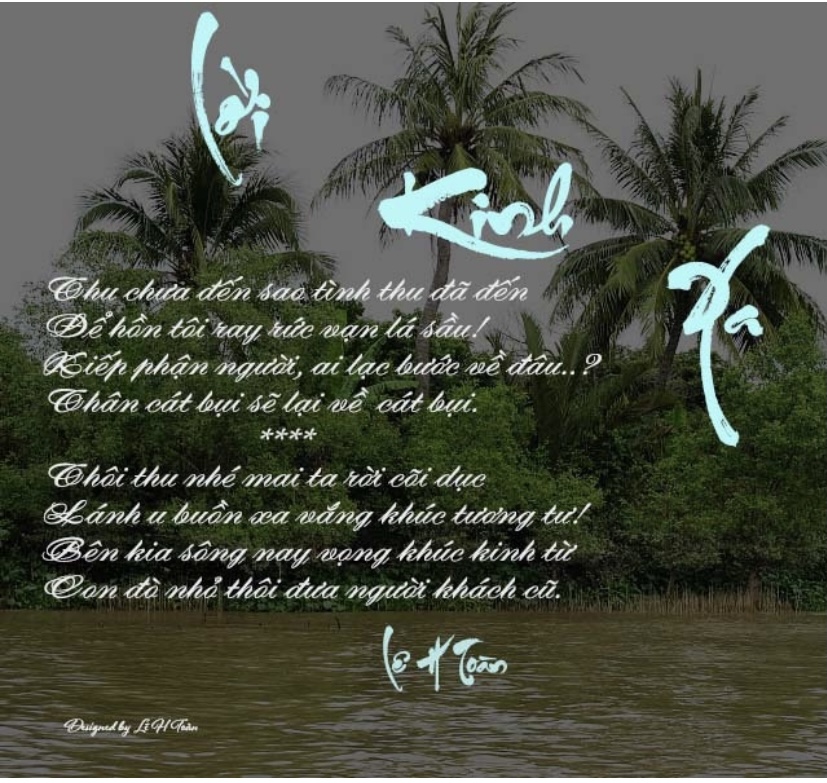 Lời
Kinh
Xa
Thu chưa đến sao tình thu đã đến
Để hồn tôi ray rức vạn lá sầu!
Kiếp phận người, ai lạc bước về đâu..?
Thân cát bụi sẽ lại về cát bụi.
****
Thôi thu nhé mai ta rời cõi dục
Lánh u buồn xa vắng khúc tương tư!
Bên kia sông nay vọng khúc kinh từ
Con đò nhỏ thôi đưa người khách cũ.
Lê H Toàn
Designed by Lê H Toàn